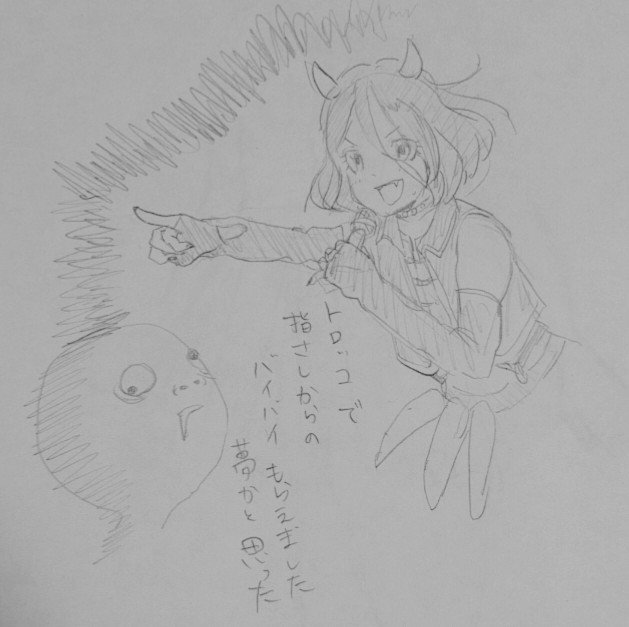 トロッコで
指さしからの
バイバイ もらえました
夢かと思った